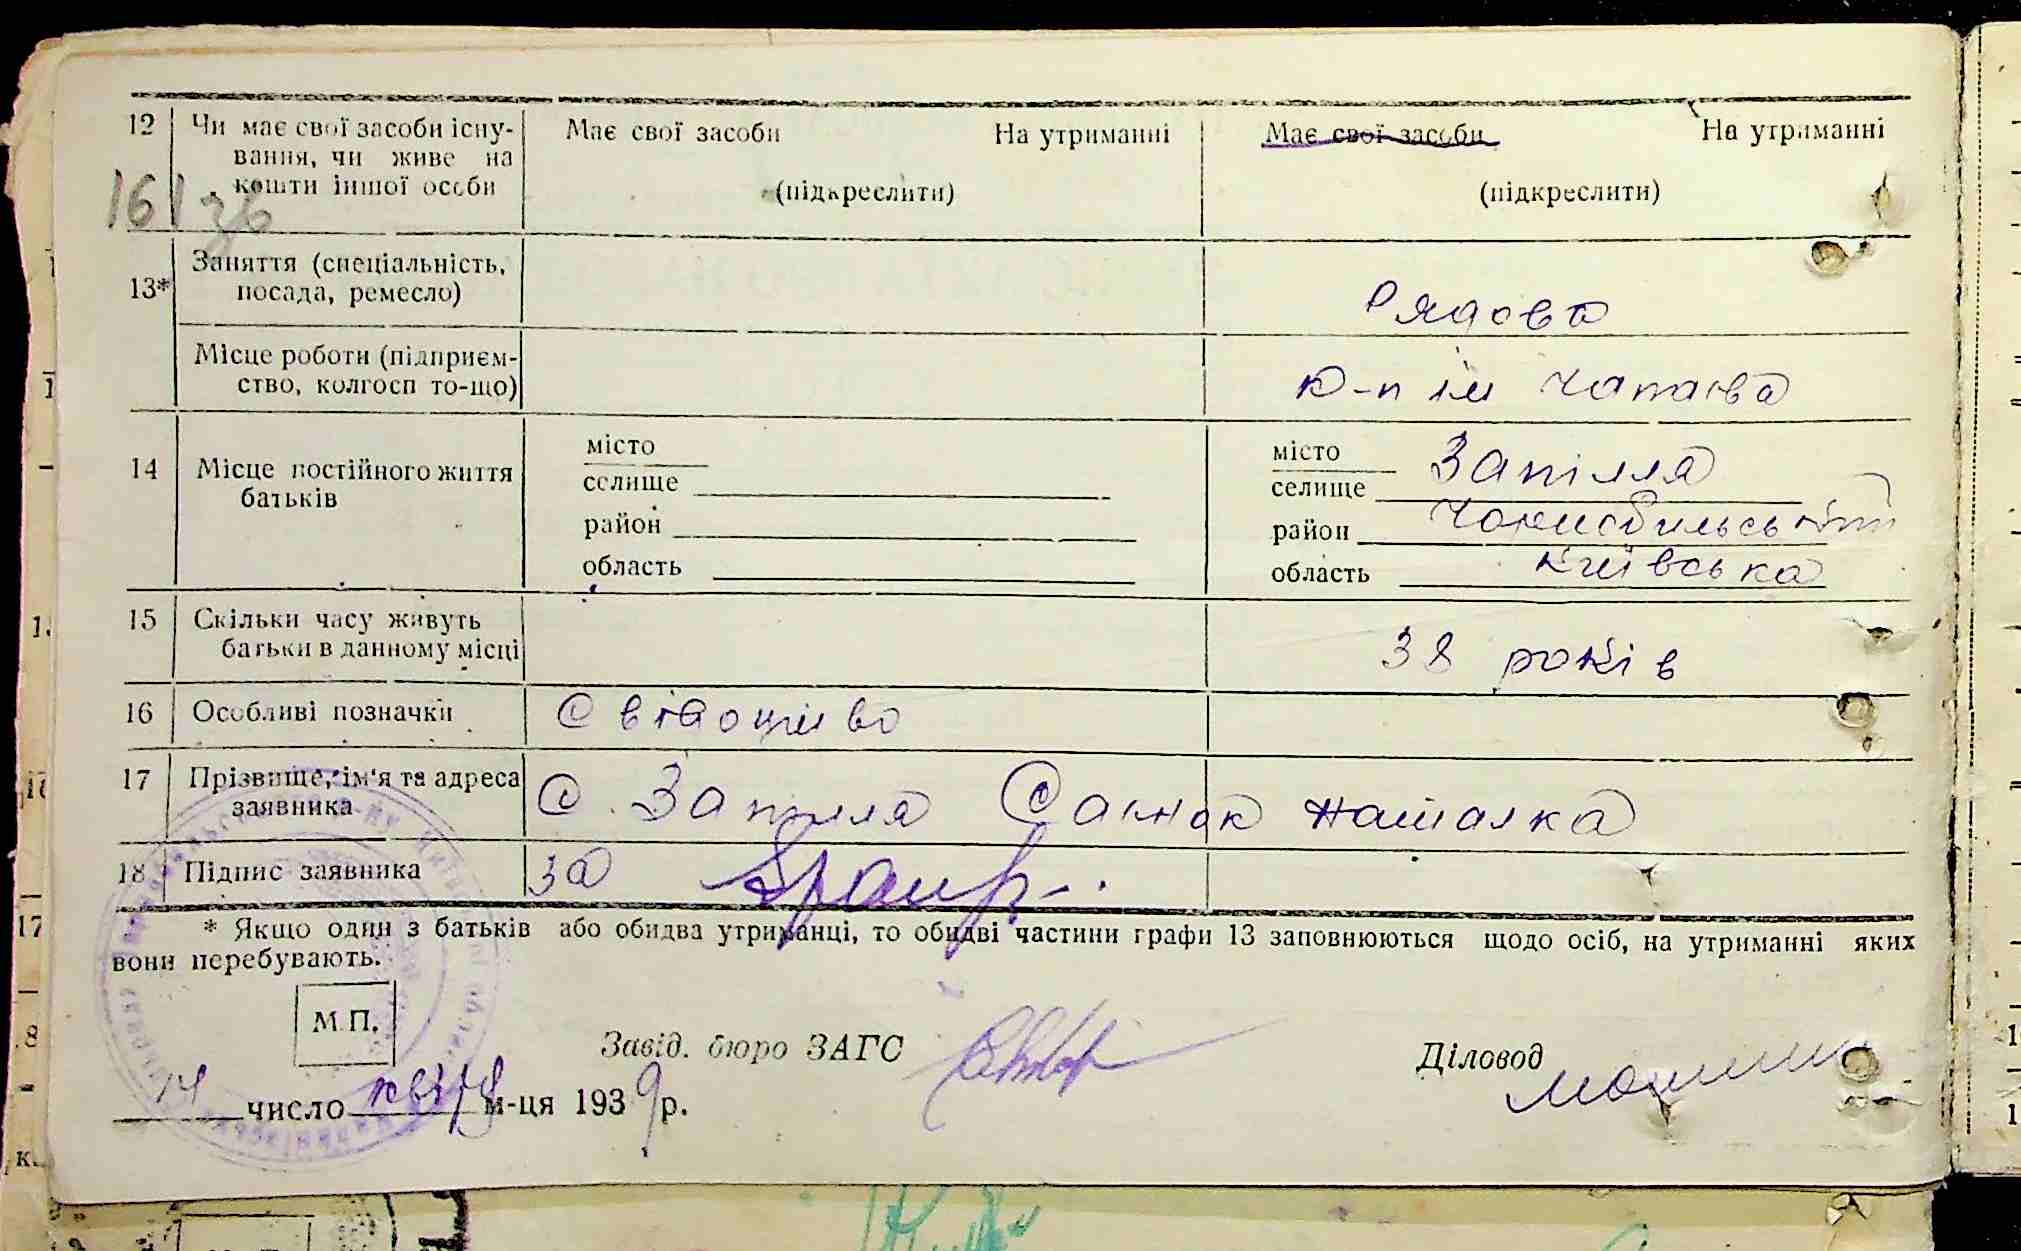 12 Чи має свої засоби існу-
вання, чи живе на
кошти іншої особи
Має свої засоби На утриманні
(підкреслити)
Має свої засоби На утриманні
(підкреслити)
161
13* Заняття (спеціальність,
посада, ремесло)
Рядова
Місце роботи (підприєм-
ство, колгосп то-що)
к-п ім Чапаєва
14 Місце постійного життя
батьків
місто
селище
район
область
місто
селище Запілля
район Чорнобильський
область Київська
15 Скільки часу живуть
батьки в данному місці
38 років
16 Особливі позначки
17 Прізвище, ім'я та адреса
заявника
С. Запілля Наталка
18 Підпис заявника
за
* Якщо один з батьків або обидва утриманці, то обидві частини графи 13 заповнюються щодо осіб, на утриманні яких
вони перебувають.
М.П.
Завід. бюро ЗАГС
Діловод
14 число квітня м-ця 1939 р.